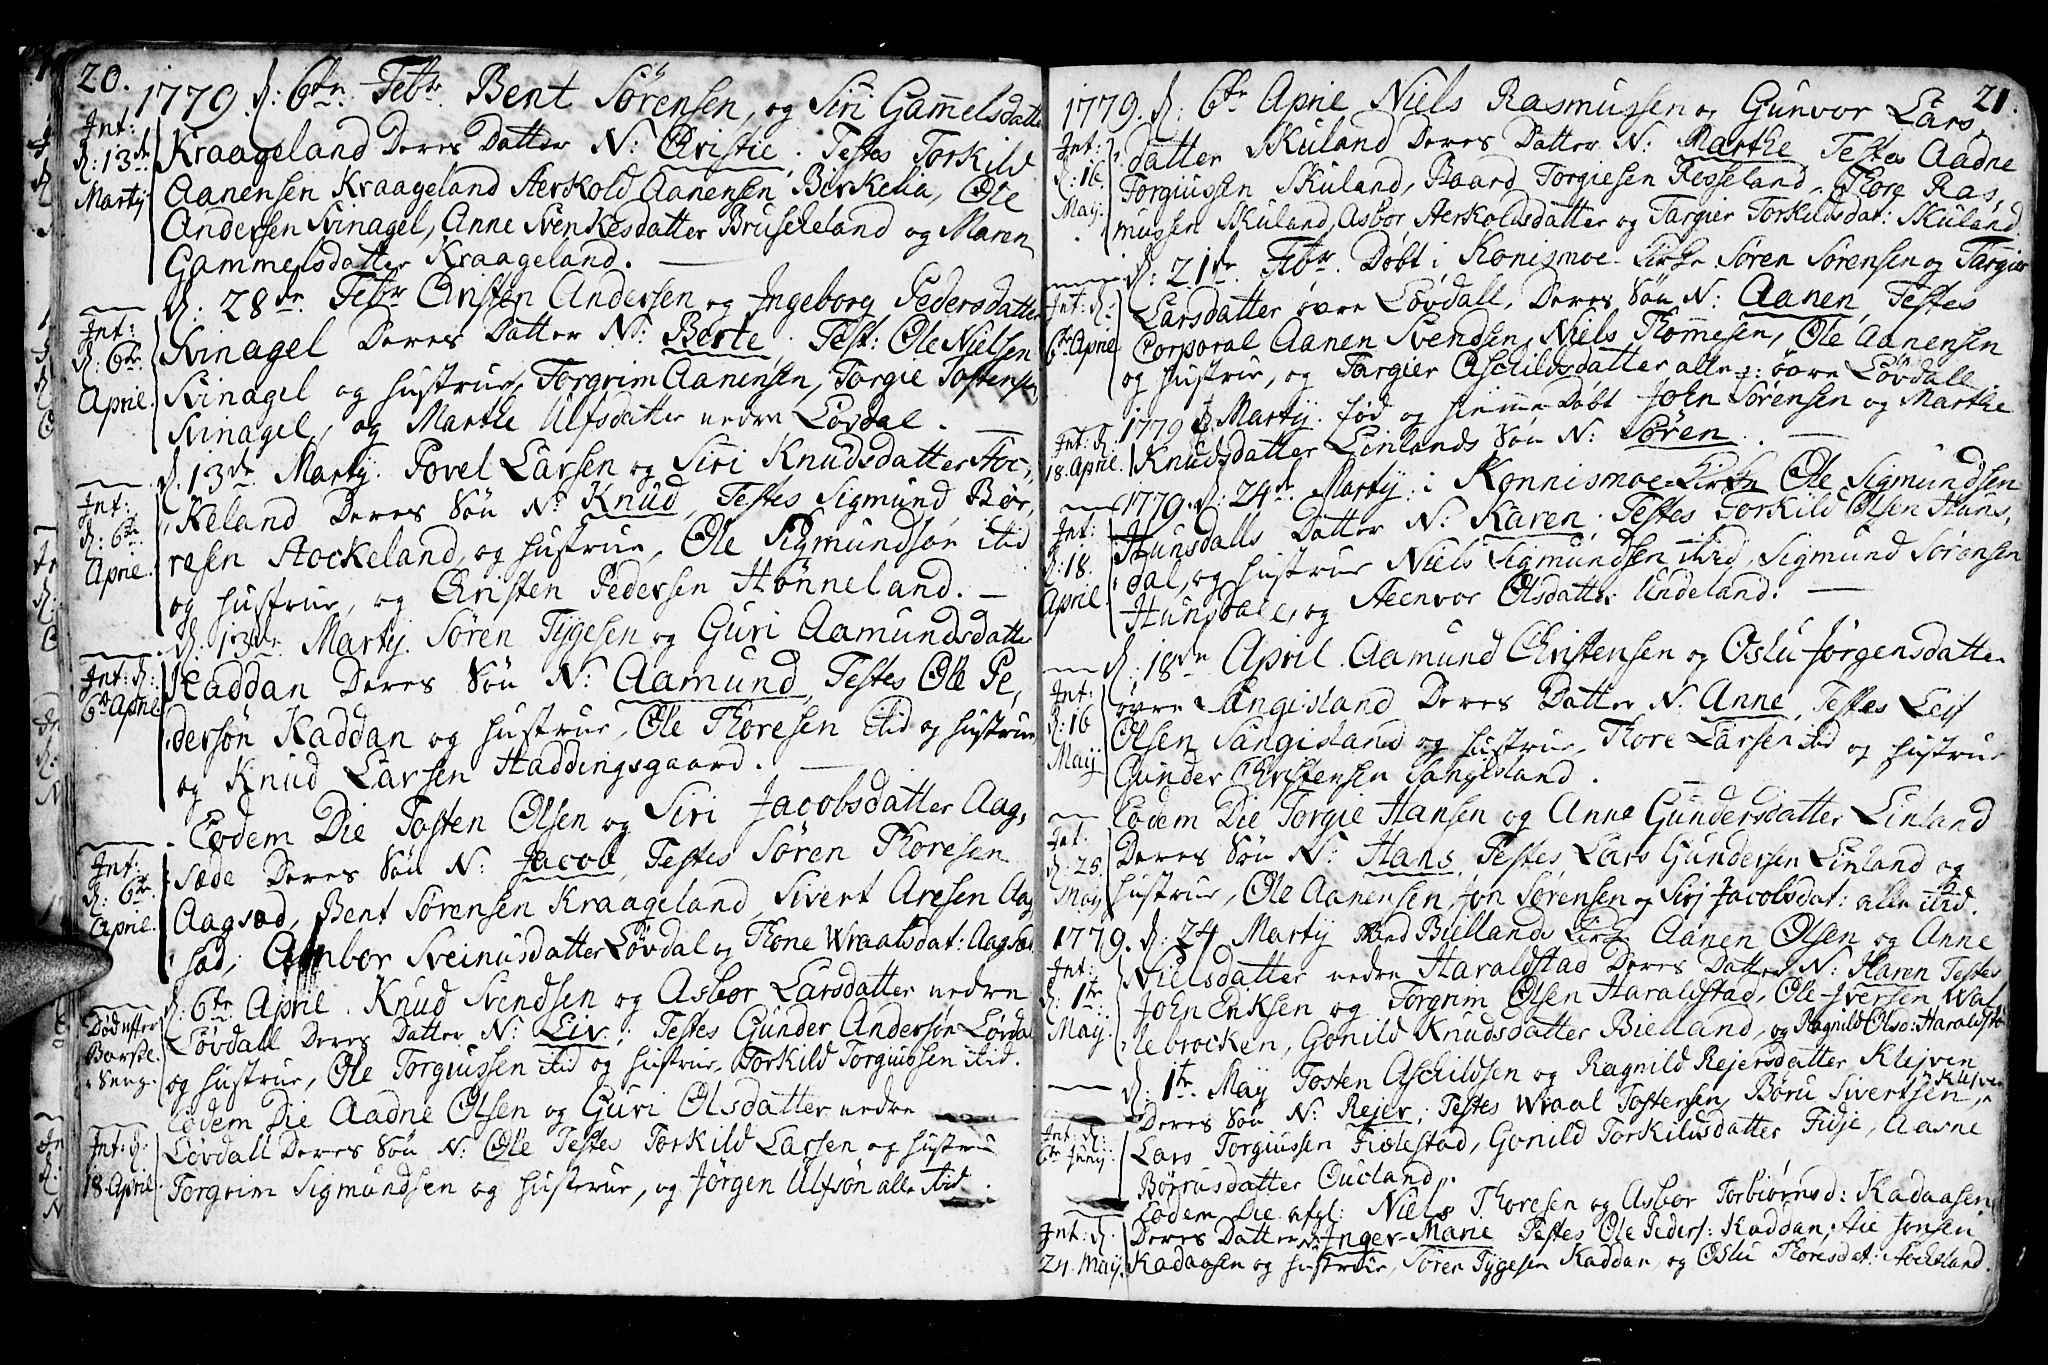 20.
1779. d: 6te Febr. Bent Sörensen, og Siri Gammelsdatter
Int:
d: 13de
Martij
Kraageland Deres Datter N: Christie. Testes Torkild
Aanensen Kraageland Aerkold Aanensen Birkelia, Ole
Andersen Svinagel, Anne Svenkesdatter Bruskeland og Maren
Gammelsdatter Kraageland.
d: 28de Febr Christen Andersen og Ingeborg Pedersdatter
Int:
d: 6te
April.
Svinagel Deres Datter N: Berte. Test: Ole Nielsen
Svinagel og hustrue, Torgrim Aanensen, Torgie Tostensen
Svinagel, og Marthe Ulfsdatter nedre Lövdal.
d. 13de Martij. Povel Larsen og Siri Knudsdatter Stoc,
Int:
d: 6te
April.
keland Deres Sön N: Knud, Testes Sigmund Bör,
resen Stockeland, og hustrue, Ole Sigmundsön itid
og hustrue, og Christen Pedersen Hönneland.
d. 13de Martij. Sören Tygesen og Guri Aamundsdatter
Int: d:
6te April.
Kaddan Deres Sön N: Aamund, Testes Ole Pe,
dersön Kaddan og hustrue, Ole Thoresen itid og hustrue
og Knud Larsen Haddingsgaard.
Eodem Die Tosten Olsen og Siri Jacobsdatter Aag,
Int:
d: 6te
April.
sæde Deres Sön N: Jacob, Testes Sören Thoresen
Aagsæd, Bent Sörensen Kraageland, Sivert Aresen Aag
sæd, Sveinusdatter Lövdal og Thone Wraalsdat: Aagsæd
d: 6te April. Knud Svendsen og Asbor Larsdatter nedre
Död efter
Barsel
Seng.
Lövdall Deres Datter N: Liv; Testes Gunder Andersön Lövdal
og hustrue, Ole Torgiussen itid og hustrue, Torkild Torgiussen itid.
Eodem Die Aadne Olsen og Guri Olsdatter nedre
Int: d.
18. April.
Lövdall Deres Sön N: Ole Testes Torkild Larsen og hustrue
Torgrim Sigmundsen og hustrue, og Jörgen Ulfsön alle itid.
21.
1779. d: 6te April Niels Rasmussen og Gunvor Lars,
Int:
d: 16.
Maij.
datter Skuland Deres Datter N: Marthe Testes Aadne
Torgiussen Skuland, Baard Torgiesen Rosseland, Thore Ras,
mussen Skuland, Asbor Aerkoldsdatter og Targier Torkildsdat: Skuland.
d: 21de Febr. Döbt i Konismoe Kirke Sören Sörensen og Targier
Int: d:
6te April
Larsdatter övre Lövdall, Deres Sön N: Aanen, Testes
Corporal Aanen Svendsen, Niels Thommesen, Ole Aanensen
og hustrue, og Targier Aschildsdatter alle övre Lövdall
1779 d. Martij. född og hjemme Döbt John Sörensen og Marthe
Int: d.
18. April.
Knudsdatter Einlands Sön N: Sören.
1779. d: 24de Martij i Konnismoe-Kirke Ole Sigmundsen
Int:
d: 18.
April.
Hunsdalls Datter N: Karen. Testes Torkild Olsen Huns,
dal, og hustrue Niels Sigmundsen itid, Sigmund Sörensen
Hunsdale, og Steenvor Olsdatter Undeland.
d. 18de April. Aamund Christensen og Oslu Jörgensdatter
Int:
d: 16
Maij
övre Sangesland Deres Datter N. Anne, Testes Leif
Olsen Sangesland og hustrue, Thore Larsen itid og hustrue
Gunder Christensen Sangesland.
Eodem Die Torgie Hansen og Anne Gundersdatter Einland
Int.
d: 25.
Maij
Deres Sön N: Hans, Testes Lars Gundersen Einland og
hustrue, Ole Aanensen, Jon Sörensen og Siri Jacobsdat: alle itid.
1779. d. 24 Martij ved Biellands Kirke Aanen Olsen og Anne
Int:
d: 1te
Maij.
Nielsdatter nedre Haraldstad Deres Datter N: Karen Testes
John Eriksen og Torgrim Olsen Haraldstad, Ole Iversen Wal,
lebrocken, Gonild Knudsdatter Bielland, og Ragnild Olsd: Haraldstad
d: 1te Maij Tosten Aschildsen og Ragnild Rejersdatter Klejven
Int: d:
6te Junij
Deres Sön N: Rejer; Testes Wraal Tostensen, Böru Sivertsen, Klejven
Lars Torgiussen Fiælestad, Gonild Torkildsdatter Fidje, Aasne
Börrusdatter Ouesland.
Eodem Die afgl: Niels Thoresen og Asbor Torbiörnsd: Kadaasen
Int: d.
24. Maij.
Deres Datter N: Inger-Marie Testes Ole Peders: Kaddan, Aie Jonsen
Kadaasen og hustrue, Sören Tygesen Kaddan, og Oslu Thoresdat: Stockeland.